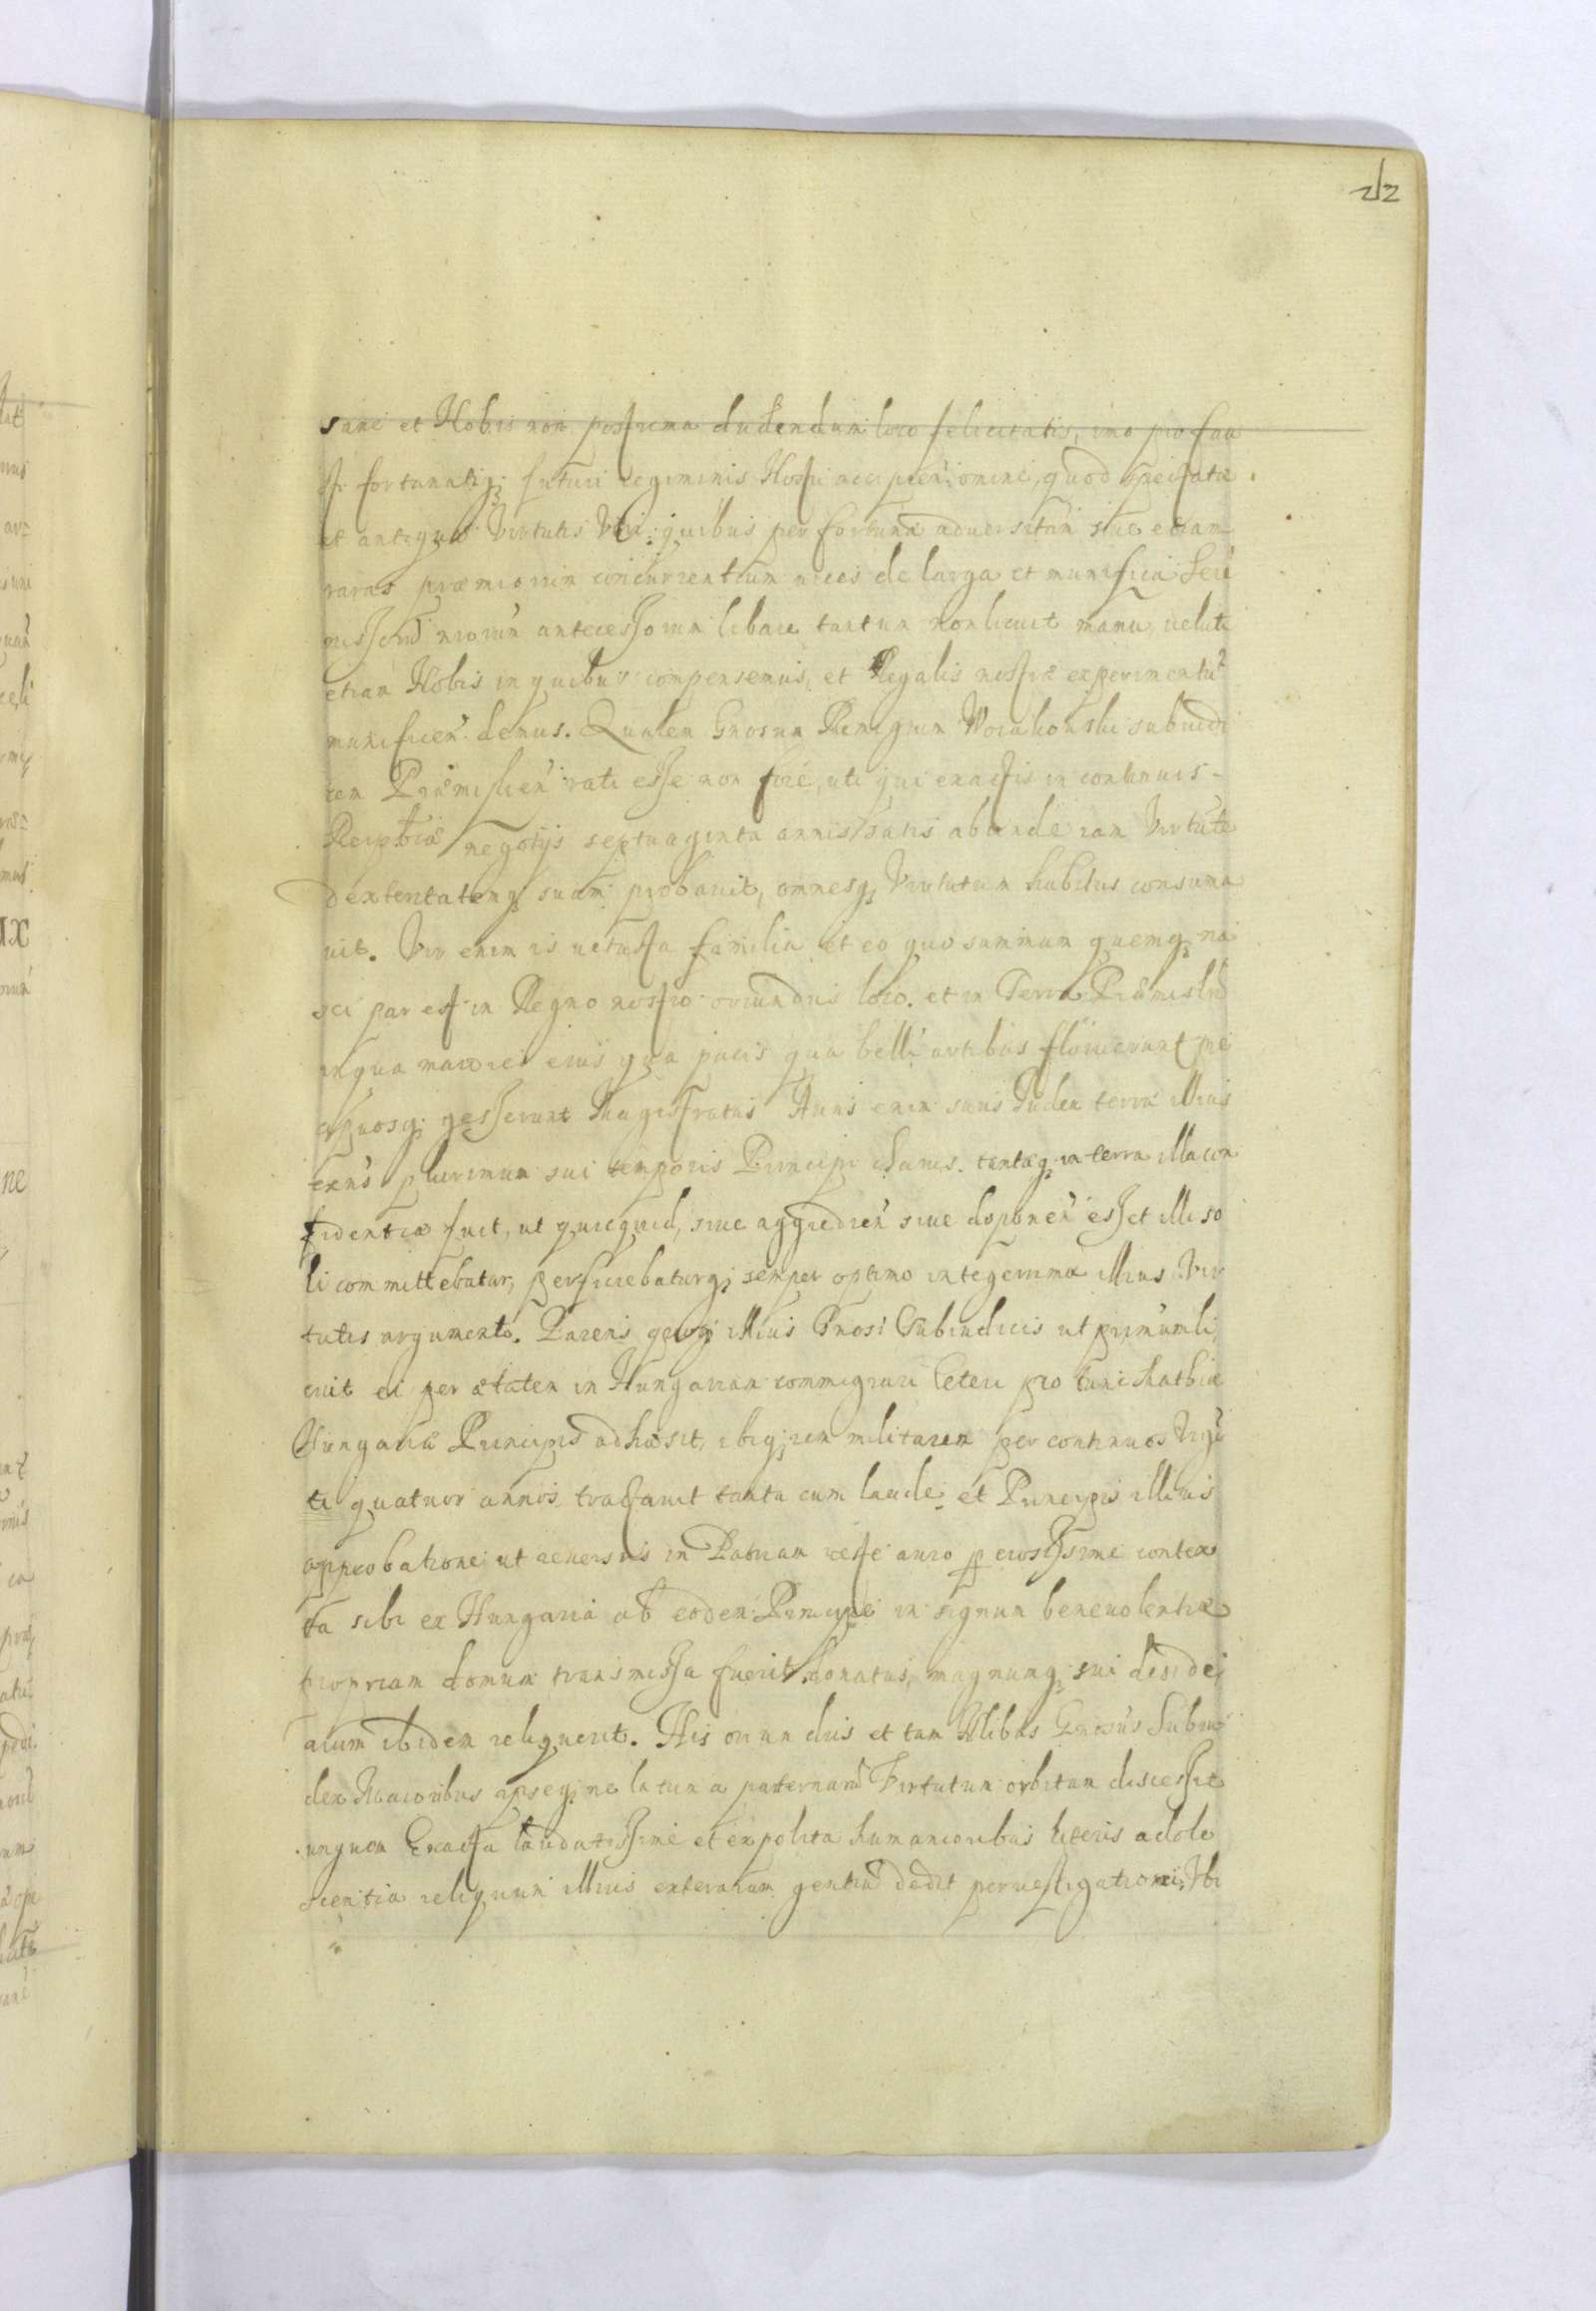 212
sane et Nobis non postrema ducendum loco felicitatis, imo pro fau
sti fortunatiq; futuri regiminis Nostri accipien: omine, quod spectatae
et antiquae Virtutis Viri, quibus per fortunae aduersitatem siue etiam
raras praemiorum concurrentium uices de larga et munifica Sere
nissimorum antecessorum libare tantum non licuit manu, ueluti
etiam Nobis in quibus compensemus, et Regalis nostrae experimentu
munificen: demus. Qualem Gnosum Remigium subiudi
cem Praemislien rati esse non fore, uti qui exactis in continuis
Reiptcae negotijs septuaginta annis satis abunde iam Virtute
dexteritatemq; suam probauit, omnesq; Virtutum habitus consuma
uit. Vir enim is uetusta familia et eo quo summum quemq; na
sci par est in Regno nostro oriundus loco. et in Terra Praemislien
in qua maiores eius qua pacis qua belli artibus floruerunt
quosq; gesserunt Magistratus Auus enim suus Iudex terrae illius
plurimum sui temporis Principi charus. tantaeq; in terra illa con
fidentiae fuit, ut quicquid, siue aggredien siue doponen esset illi so
li committebatur, perficiebaturq; semper optimo integerrimae illius Vir
tutis argumento. Parens illius Gnosi Subiudicis ut primum li
cuit ei per aetatem in Hungariam commigrare pro tunc
Hungariae Principis adhaesit, ibiq; rem militarem per continuos Vigi
ti quatuor annos tractauit tanta cum laude et Principis illius
approbatione ut reuersus in Patriam ueste auro contex
ta sibi ex Hungaria ab eodem Principe in signum beneuolentiae
propriam domum transmissa fuerit donatus, magnumq; sui deside
rium ibidem reliquerit. His oriundus et tam Nlibus Gnosus Subiu
dex Maioribus ipseq; ne latum a paternarum Virtutum orbitam discessit
unquem Exacta laudatissime et expolita humanioribus literis adole
scentia reliquum illius exterarum gentiu dedit peruestigationi, Ibi